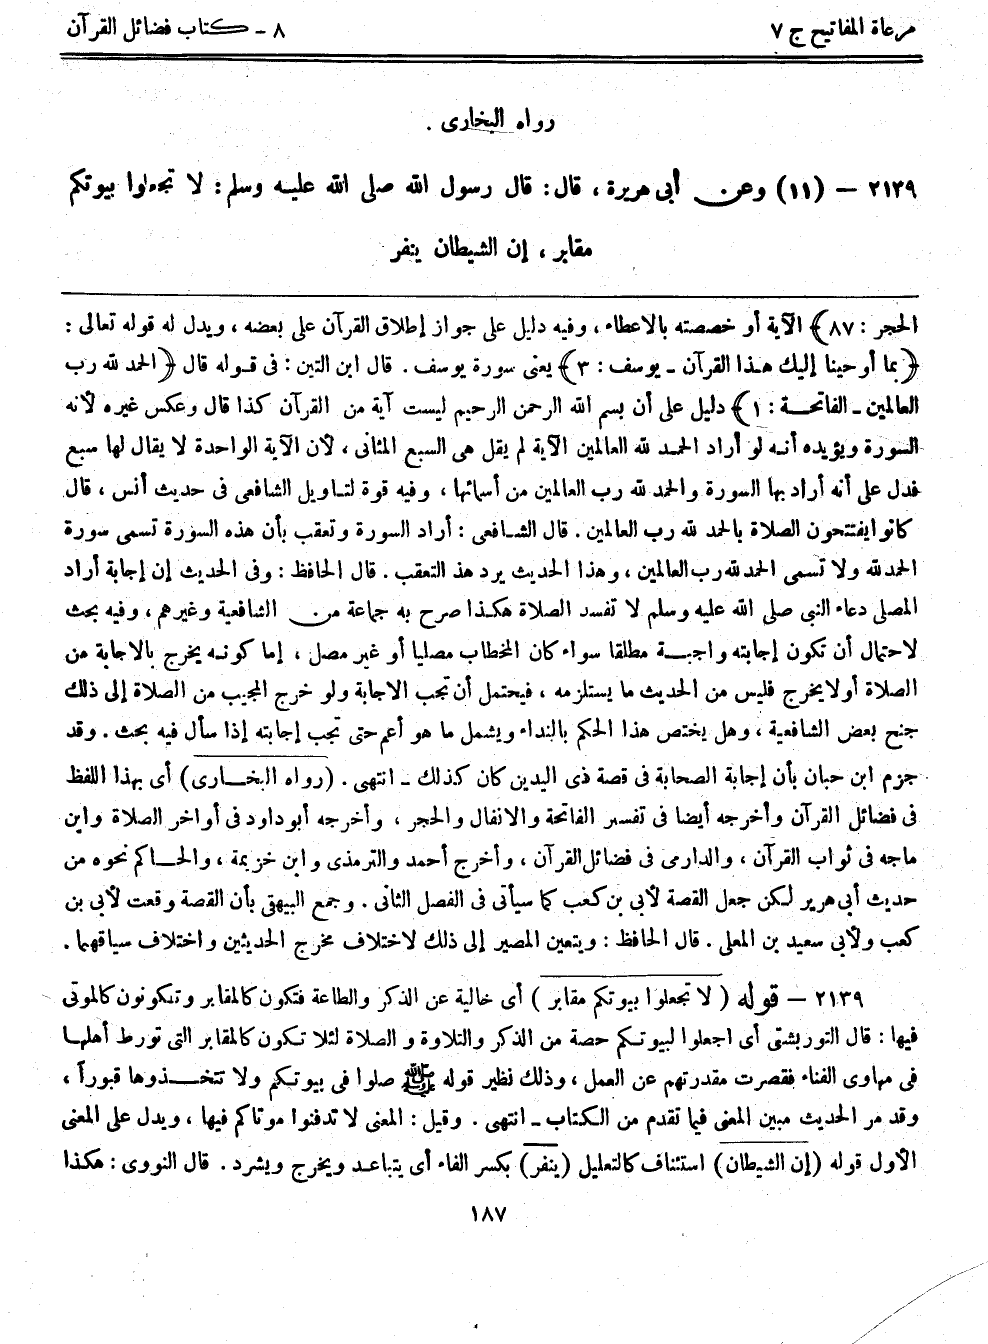 مرعاة المفاتيح ج ٧
٨ - كتاب فضائل القرآن
رواه البخارى .
٢١٣٩ – (١١) وعن أبى هريرة ، قال : قال رسول الله صلى الله عليه وسلم : لا تجعلوا بيوتكم
مقابر ، إن الشيطان ينفر
الحجر : ٨٧﴾ الآية أو خصصته بالاعطاء ، وفيه دليل على جواز إطلاق القرآن على بعضه ، ويدل له قوله تعالى :
﴿بما أوحينا إليك هذا القرآن ـ يوسف : ٣﴾ يعنى سورة يوسف . قال ابن التين : فى قوله قال ﴿الحمد لله رب
العالمين ـ الفاتحة : ١﴾ دليل على أن بسم الله الرحمن الرحيم ليست آية من القرآن كذا قال وعكس غيره لأنه
السورة ويؤيده أنه لو أراد الحمد لله العالمين الآية لم يقل هى السبع المثانى ، لأن الآية الواحدة لا يقال لها سبع
فدل على أنه أراد بها السورة والحمد لله رب العالمين من أسمائها ، وفيه قوة لتاويل الشافعى فى حديث أنس ، قال
كانوا يفتتحون الصلاة بالحمد لله رب العالمين . قال الشافعى : أراد السورة وتعقب بأن هذه السورة تسمى سورة
الحمد لله ولا تسمى الحمد لله رب العالمين ، وهذا الحديث يرد هذ التعقب . قال الحافظ : وفى الحديث إن إجابة أراد
المصلى دعاء النبى صلى الله عليه وسلم لا تفسد الصلاة هكذا صرح به جماعة من الشافعية وغيرهم ، وفيه بحث
لاحتمال أن تكون إجابته واجبة مطلقا سواء كان المخطاب مصليا أو غير مصل ، إما كونه يخرج بالاجابة من
الصلاة أولا يخرج فليس من الحديث ما يستلزمه ، فيحتمل أن تجب الاجابة ولو خرج المجيب من الصلاة إلى ذلك
جنح بعض الشافعية ، وهل يختص هذا الحكم بالنداء ويشمل ما هو أعم حتى تجب إجابته إذا سأل فيه بحث . وقد
جزم ابن حبان بأن إجابة الصحابة فى قصة ذى اليدين كان كذلك ـ انتهى . (رواه البخارى) أى بهذا اللفظ
فى فضائل القرآن وأخرجه أيضا فى تفسير الفاتحة والانفال والحجر ، وأخرجه أبوداود فى أواخر الصلاة وابن
ماجه فى ثواب القرآن ، والدارمى فى فضائل القرآن ، وأخرج أحمد والترمذى وابن خزيمة ، والحاكم نحوه من
حديث أبى هرير لكن جعل القصة لأبى بن كعب كما سيأتى فى الفصل الثانى . وجمع البيهقى بأن القصة وقعت لأبى بن
كعب ولأبى سعيد بن المعلى . قال الحافظ : ويتعين المصير إلى ذلك لاختلاف مخرج الحديثين واختلاف سياقهما .
٢١٣٩ – قوله (لا تجعلوا بيوتكم مقابر) أى خالية عن الذكر والطاعة فتكون كالمقابر وتكونون كالموتى
فيها : قال التوربشتى أى اجعلوا لبيوتكم حصة من الذكر والتلاوة و الصلاة لئلا تكون كالمقابر التى تورط أهلها
فى مهاوى الفناء فقصرت مقدرتهم عن العمل ، وذلك نظير قوله ﷺ صلوا فى بيوتكم ولا تتخذوها قبوراً ،
وقد مر الحديث مبين المعنى فيما تقدم من الكتاب ـ انتهى . وقيل : المعنى لا تدفنوا موتاكم فيها ، ويدل على المعنى
الأول قوله (إن الشيطان) استئناف كالتعليل (ينفر) بكسر الفاء أى يتباعد ويخرج ويشرد . قال النووى : هكذا
١٨٧